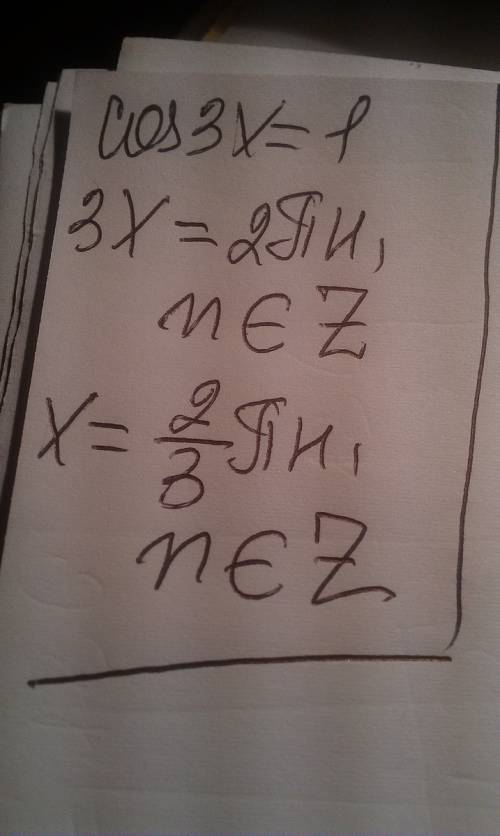 cos3x=1
3x=2πn,
n∈Z
x=2/3πn,
n∈Z